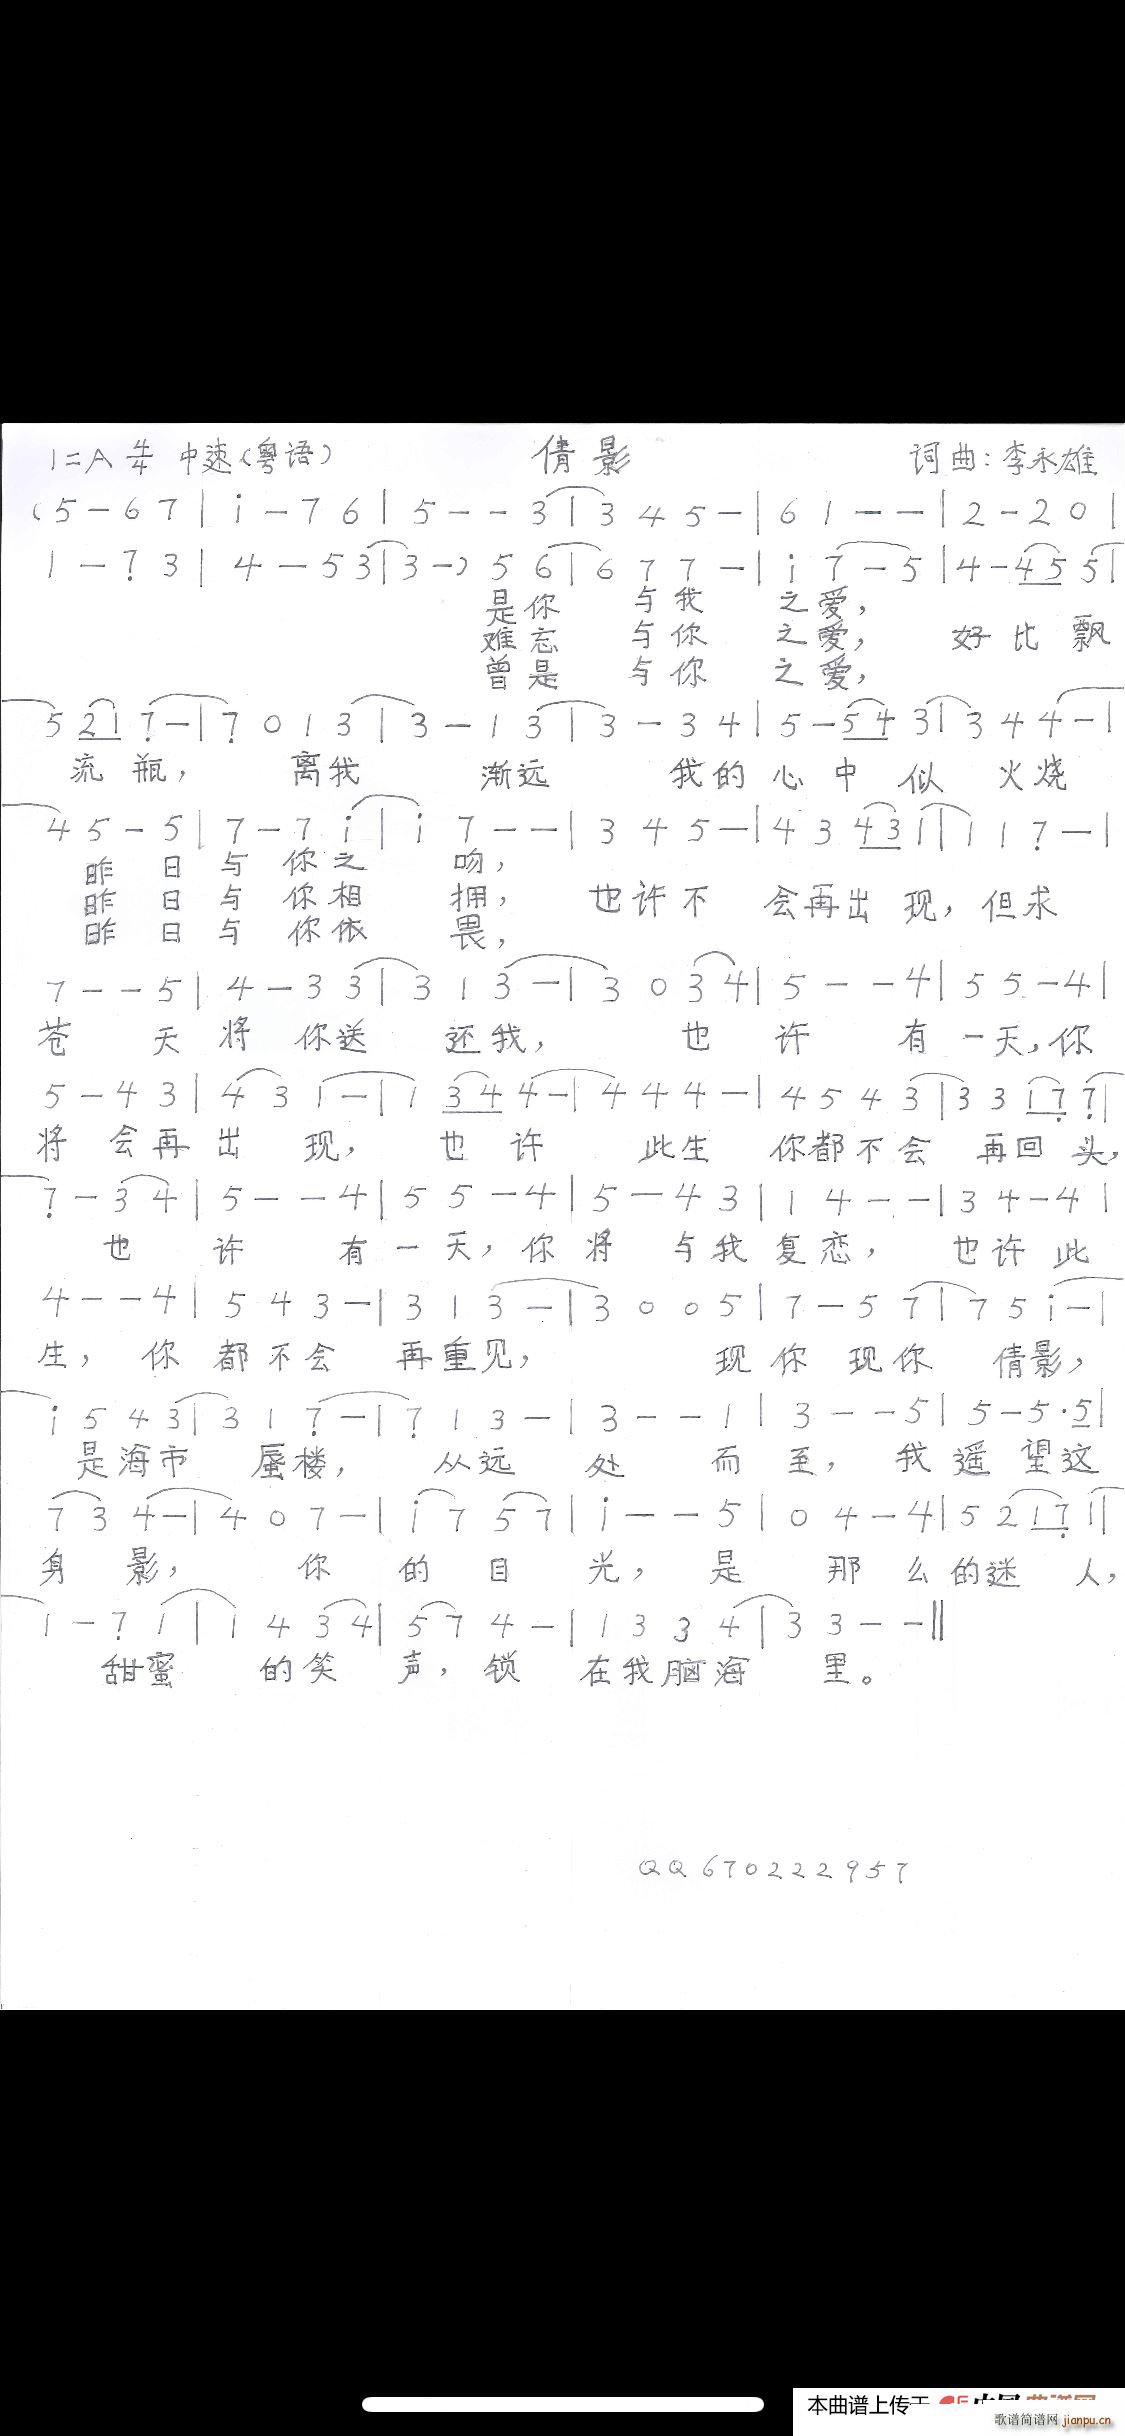 1=A 4/4 中速(粤语) 倩影 词曲:李永雄
(5 - 6 7 | i - 7 6 | 5 - - 3 | 3 4 5 - | 6 1 - - | 2 - 2 0 |
1 - 7̣ 3 | 4 - 5 3 | 3 -) 5 6 | 6 7 7 - | i 7 - 5 | 4 - 4 5 5 |
是你 与我 之爱,
难忘 与你 之爱, 好比飘
曾是 与你 之爱,
5 2 1 7̣ - | 7̣ 0 1 3 | 3 - 1 3 | 3 - 3 4 | 5 - 5 4 3 | 3 4 4 - |
流瓶, 离我 渐远 我的心中似 火烧
4 5 - 5 | 7 - 7 i | i 7 - - | 3 4 5 - | 4 3 4 3 1 | 1 1 7̣ - |
昨日与你之 吻,
昨日与你相 拥, 也许不会再出现, 但求
昨日与你依 畏,
7 - - 5 | 4 - 3 3 | 3 1 3 - | 3 0 3 4 | 5 - - 4 | 5 5 - 4 |
苍天将你送 还我, 也许 有一天,你
5 - 4 3 | 4 3 1 - | 1 3 4 4 - | 4 4 4 - | 4 5 4 3 | 3 3 1 7̣ 7̣ |
将会再出现, 也许 此生 你都不会 再回头,
7̣ - 3 4 | 5 - - 4 | 5 5 - 4 | 5 - 4 3 | 1 4 - - | 3 4 - 4 |
也许 有一天,你将 与我复恋, 也许此
4 - - 4 | 5 4 3 - | 3 1 3 - | 3 0 0 5 | 7 - 5 7 | 7 5 i - |
生, 你都不会 再重见, 现你现你 倩影,
i 5 4 3 | 3 1 7̣ - | 7̣ 1 3 - | 3 - - 1 | 3 - - 5 | 5 - 5 · 5 |
是海市 蜃楼, 从远处 而至, 我遥望这
7 3 4 - | 4 0 7 - | i 7 5 7 | i - - 5 | 0 4 - 4 | 5 2 1 7̣ 1 |
身影, 你的目光, 是那么的迷人,
1 - 7̣ 1 | 1 4 3 4 | 5 7 4 - | 1 3 3 4 | 3 3 - - ‖
甜蜜 的笑声, 锁在我脑海 里。
QQ 670222957
本曲谱上传于
歌谱简谱网 jianpu.cn